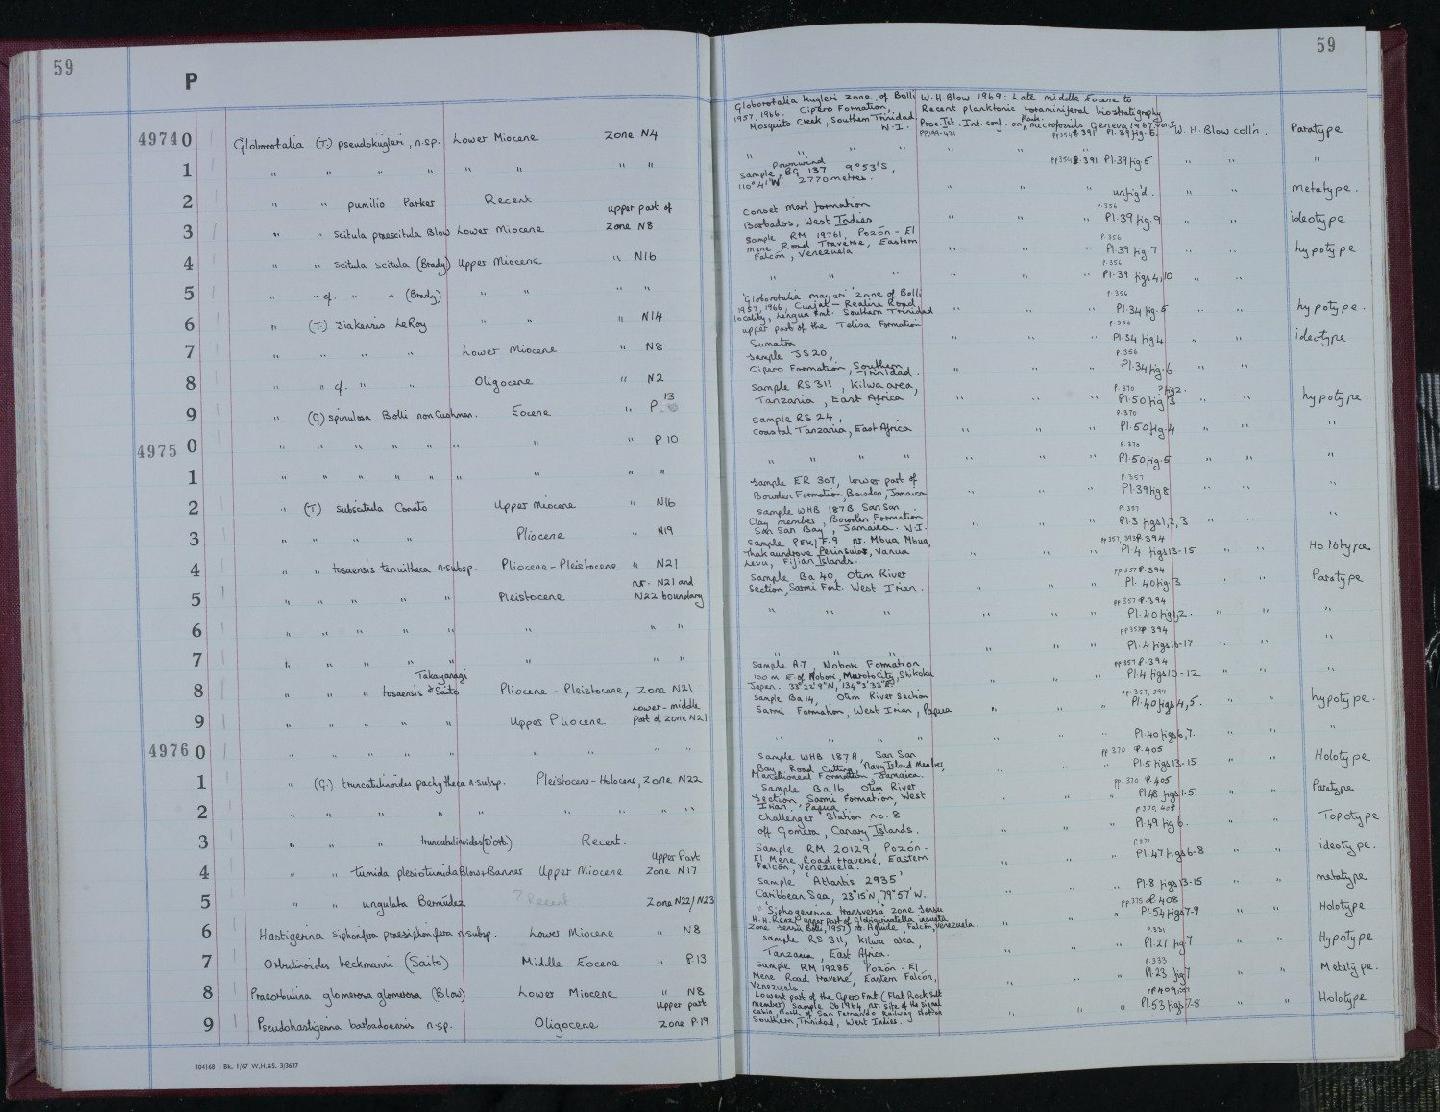 59
P
59
49740 Globorotalia (T.) pseudokugleri, n.sp. Lower Miocene Zone N4
Globorotalia kugleri zone of Bolli 1957, 1966. Cipero Formation, Mosquito Creek, Southern Trinidad W.I.
W.H Blow 1969. Late middle Eocene to Recent planktonic foraminiferal biostratigraphy
Pl.39 fig.6. W.H. Blow coll'n. Paratype
1 " " " " " " " "
" " " " P.391 Pl.39 fig.5 " " "
2 " " pumilio Parker Recent
Downwind sample, BG 137 9°53'S, 110°41'W 2770 metres.
" " " unfig'd. " " Metatype.
3 " " scitula praescitula Blow Lower Miocene upper part of Zone N8
Conset Marl formation Barbados, West Indies
" " " P.356 Pl.39 fig.9 " " ideotype
4 " " scitula scitula (Brady) Upper Miocene " N16
Sample RM 19761, Pozón - El Mene Road Traverse, Eastern Falcón, Venezuela
" " " P.356 Pl.39 fig 7 " " hypotype
5 " " cf. " " (Brady) " " " "
" " " " P.356 Pl.39 figs 4,10 " "
6 " (T.) siakensis LeRoy " " " N14
'Globorotalia mayeri' zone of Bolli 1957, 1966, locality, Lengua Fmt. Southern Trinidad
" " " P.356 Pl.34 fig.5 hypotype.
7 " " " " Lower Miocene " N8
upper part of the Telisa Formation Sumatra
" " " P.356 Pl.34 fig 4 " " ideotype
8 " " cf. " " Oligocene " N2
Sample JS20, Cipero Formation, Southern Trinidad.
" " " P.356 Pl.34 fig.6 " "
9 " (C) spinulosa Bolli non Cushman. Eocene " P.13
Sample RS 311, Kilwa area, Tanzania, East Africa
" " " P.370 Pl.50 fig 3 hypotype
49750 " " " " " " " P10
Sample RS 24, Coastal Tanzania, East Africa
" " " P.370 Pl.50 fig.4 " " "
1 " " " " " " " " "
" " " " P.370 Pl.50 fig.5 " " "
2 " (T) subscitula Conato Upper Miocene " N16
Sample ER 307, lower part of Bowden Formation, Bowden, Jamaica
" " " P.357 Pl.39 fig 8 " " "
3 " " " " Pliocene " N19
Sample WHB 187B San San Clay member, Bowden Formation San San Bay, Jamaica. W.I.
" " " P.357 Pl.3 figs 1,2,3 " " "
4 " " tosaensis tenuitheca n.subsp. Pliocene-Pleistocene " N21
nr. Mbua Mbua, Thakaundrove Peninsula, Vanua Levu, Fijian Islands.
" " " Pl.4 figs 13-15 " " Holotype
5 " " " " Pleistocene nr. N21 and N22 boundary
Sample Ba 40, Otim River Section, Sarmi Fmt. West Irian.
" " " pp357 P.394 Pl. 40 fig.3 " " Paratype
6 " " " " " " "
" " " pp357 P.394 " " "
7 " " " " " " "
" " " "
8 " " tosaensis Takayanagi & Saito Pliocene-Pleistocene, Zone N21
Sample A7, Nobori Formation 100 m E of Nobori, Muroto City, Shikoku Japan.
" " " pp357 P.394 Pl.4 figs 10-12 " " "
9 " " " " Upper Pliocene Lower-middle part of zone N21
Sample Ba14, Otim River Section Sarmi Formation, West Irian, Papua
" " " Pl.40 figs 4,5. " " hypotype.
49760 " " " " " " " "
" " " " Pl.40 figs 6,7. " " "
1 " (G.) truncatulinoides pachytheca n.subsp. Pleistocene-Holocene, Zone N22
Sample WHB 187A, San San Bay Road Cutting, Navy Island Member, Manchioneal Formation, Jamaica.
" " " pp 370 P.405 Pl.5 figs 13-15 " " Holotype
2 " " " " " " "
Sample Ba16 Otim River Section Sarmi Formation, West Irian. Papua
" " " pp. 370 P.405 Pl.48 figs 1-5 " " Paratype
3 " " " truncatulinoides (d'Orb) Recent.
Challenger Station no. 8 off Gomera, Canary Islands.
" " " Pl.49 fig 6. " " Topotype
4 " " tumida plesiotumida Blow & Banner Upper Miocene Upper Part Zone N17
Sample RM 20129, Pozón - El Mene Road traverse, Eastern Falcón, Venezuela.
" " " Pl.47 figs 6-8 " " ideotype.
5 " " ungulata Bermúdez ? Recent Zone N22/N23
Sample 'Atlantis 2935' Caribbean Sea, 23°15'N, 79°57'W.
" " " Pl.8 figs 13-15 " " metatype
6 Hastigerina siphonifera praesiphonifera n.subsp. Lower Miocene " N8
"Siphogenerina transversa" zone sensu H.H. Renz, upper part of Globigerinatella insueta zone sensu Bolli, 1957) nr. Aguide, Falcón, Venezuela.
" " P.408 Pl.54 figs 7-9 " " Holotype
7 Orbulinoides beckmanni (Saito) Middle Eocene " P.13
Sample RS 311, Kilwa area, Tanzania, East Africa.
" " " Pl.21 fig 7 " " Hypotype
8 Praeorbulina glomerosa glomerosa (Blow) Lower Miocene " N8
Sample RM 19285, Pozón - El Mene Road traverse, Eastern Falcón, Venezuela.
" " " P.333 Pl.23 fig 7 " " Metatype.
9 Pseudohastigerina barbadoensis n.sp. Oligocene upper part Zone P.19
Lowest part of the Cipero Fmt (Flat Rock Silt member) Sample nr. Site of the signal cabin, north of San Fernando Railway Station Southern, Trinidad, West Indies.
" " " Pl.53 figs 7-8 " " Holotype
104168 Bk. 1/67 W.H.&S. 3/3617